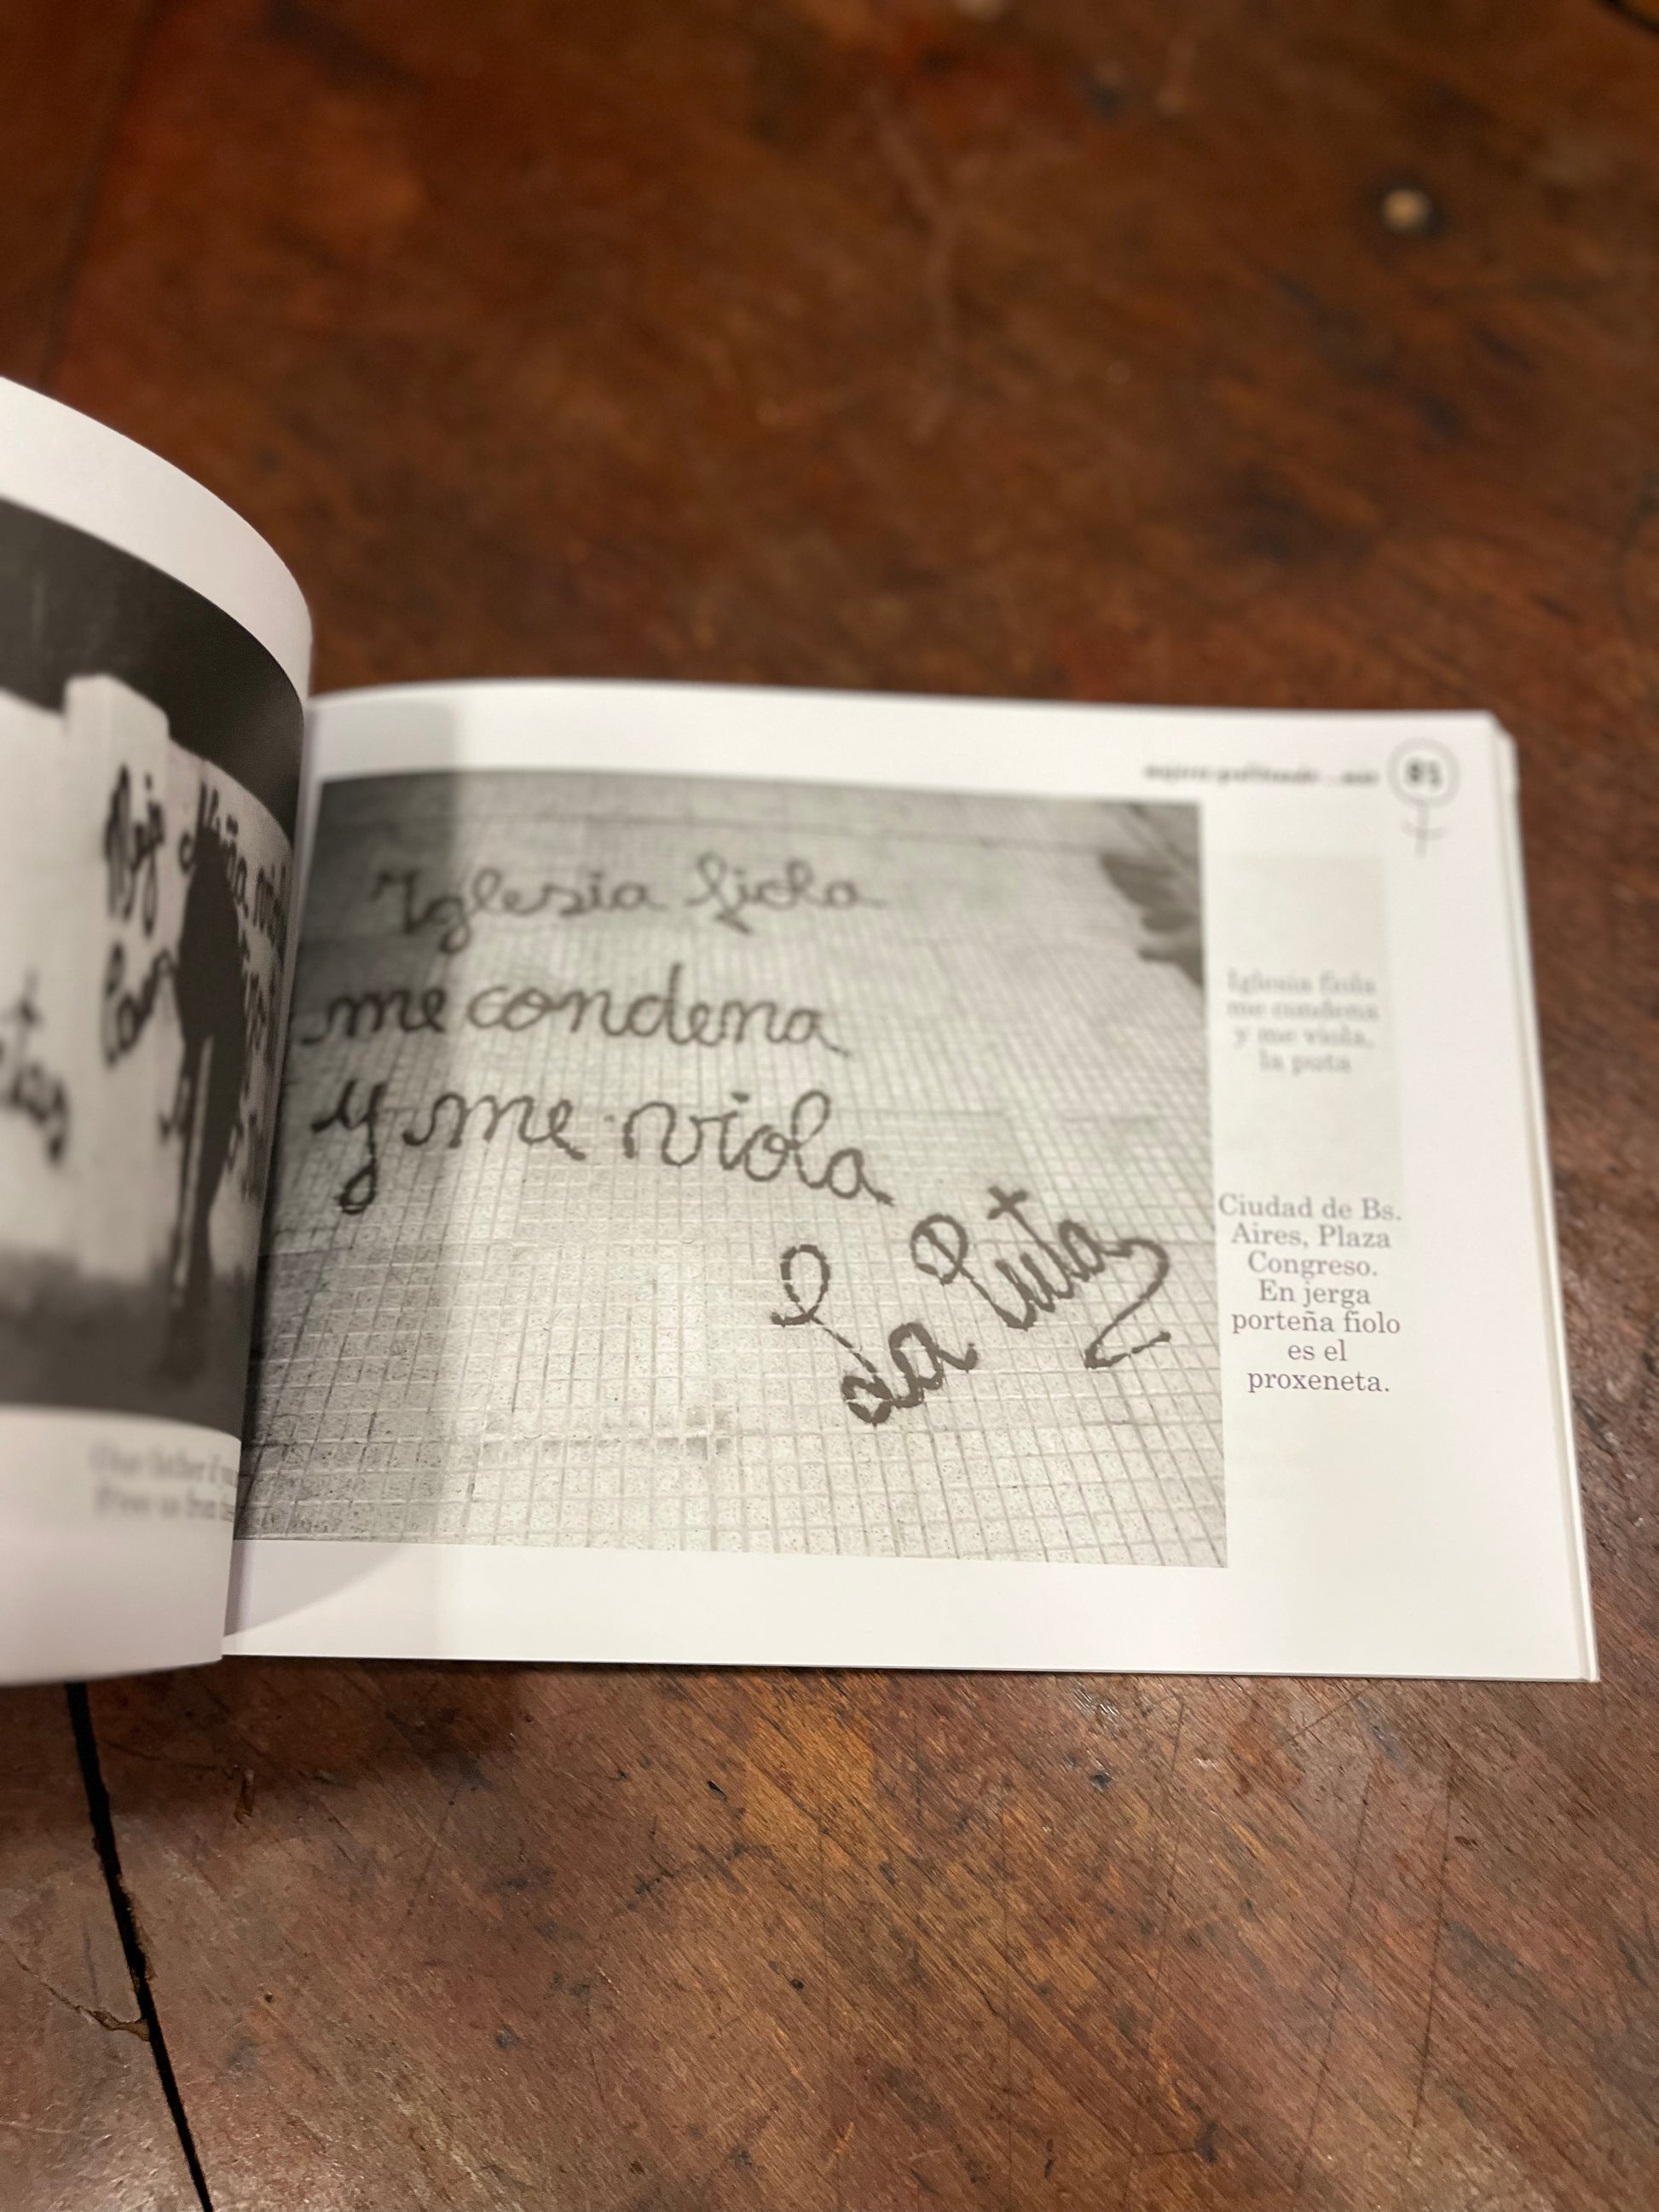 Iglesia fiola
me condena
y me viola
La Puta
Iglesia fiola
me condena
y me viola,
la puta
Ciudad de Bs.
Aires, Plaza
Congreso.
En jerga
porteña fiolo
es el
proxeneta.